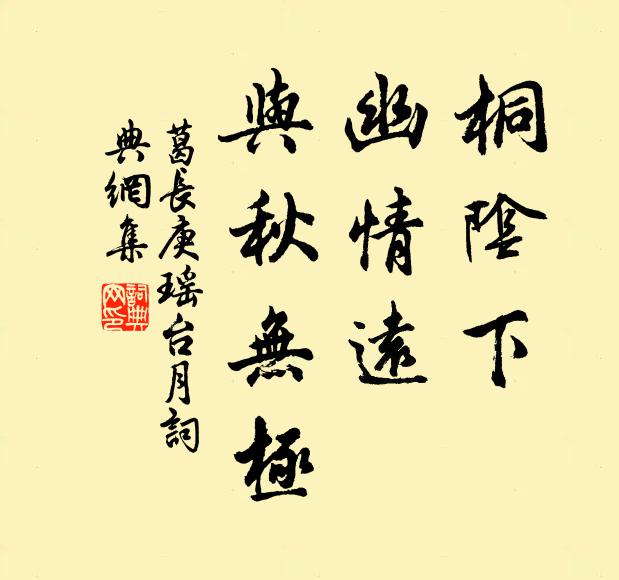 桐陰下
幽情遠
與秋無極
葛長庚瑶台月詞
典網集
詞典
网印